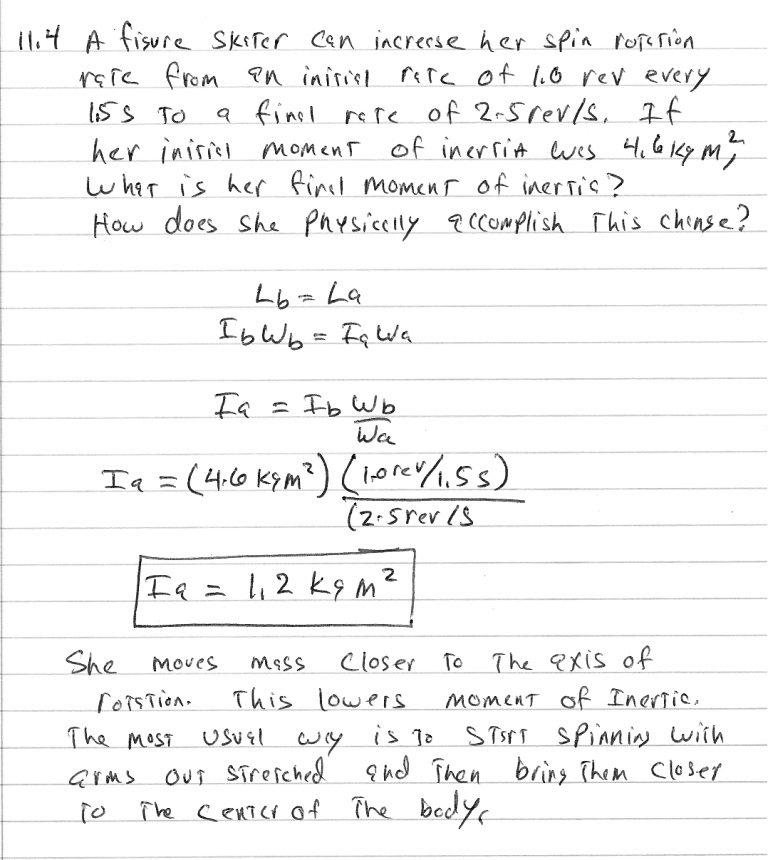 11.4 A figure skater can increase her spin rotation
rate from an initial rate of 1.0 rev every
1.5 s to a final rate of 2.5 rev/s. If
her initial moment of inertia was 4.6 kg m²,
what is her final moment of inertia?
How does she physically accomplish this change?
Lb = La
Ib ωb = Ia ωa
Ia = Ib ωb
ωa
Ia = (4.6 kgm²) (1.0 rev/1.5 s)
(2.5 rev/s
Ia = 1.2 kg m²
She moves mass closer to the axis of
rotation. This lowers moment of Inertia.
The most usual way is to start spinning with
arms out stretched and then bring them closer
to the center of the body.